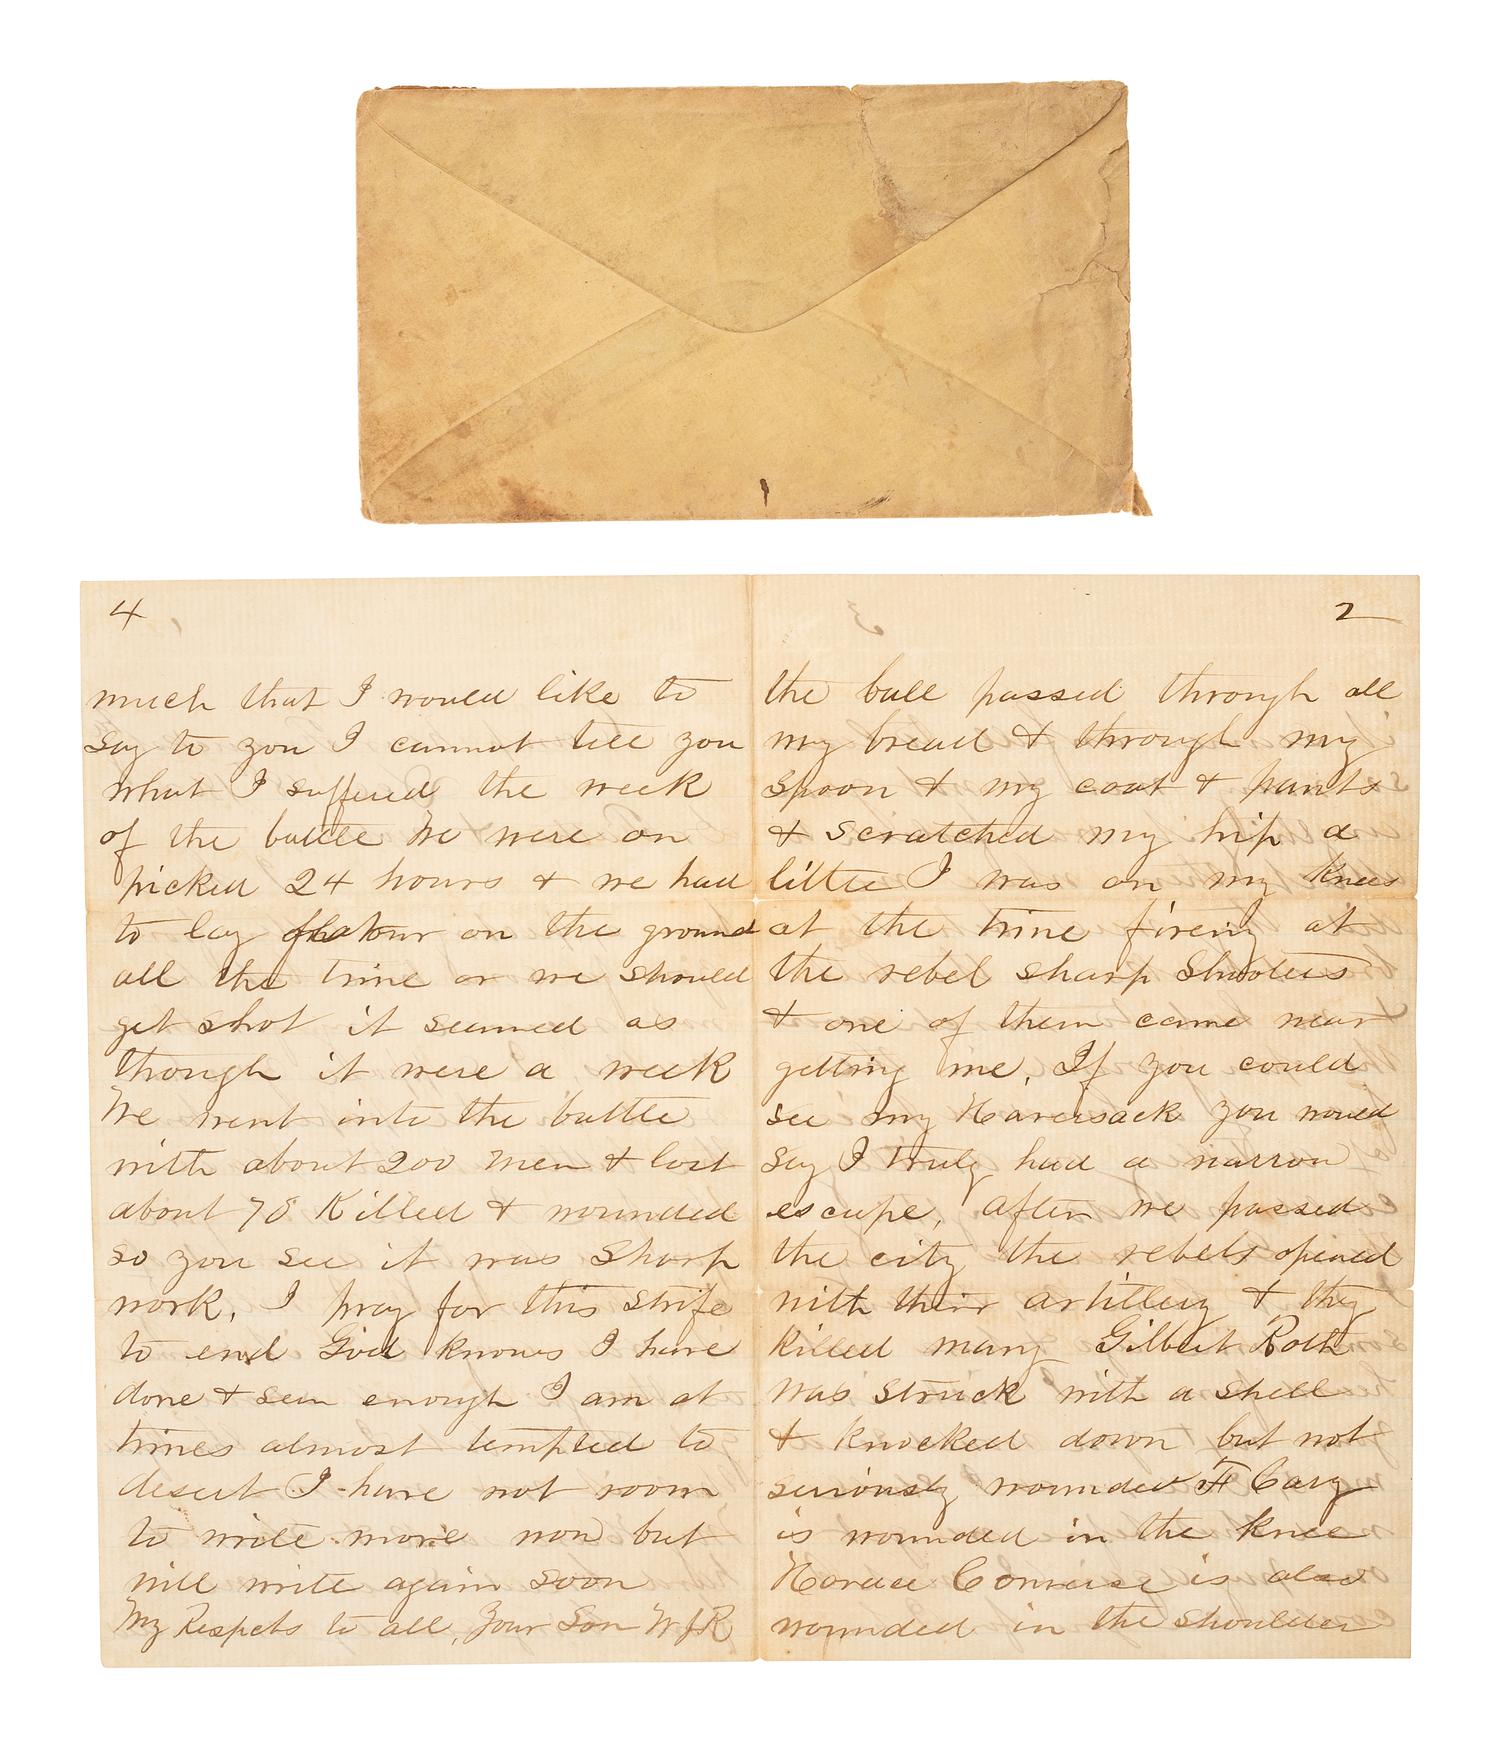 4
much that I would like to
say to you I cannot tell you
what I suffered the week
of the battle We were on
picked 24 hours & we had
to lay on the ground
all the time or we should
get shot it seemed as
though it were a week
We went into the battle
with about 200 men & lost
about 78 Killed & wounded
so you see it was Sharp
work. I pray for this Strife
to end God knows I have
done & seen enough I am at
times almost tempted to
desert I have not room
to write more now but
will write again soon
My Respets to all, Your Son WJR
2
the ball passed through all
my bread & through my
spoon & my coat & pants
& scratched my hip a
little I was on my Knees
at the time fireing at
the rebel sharp Shooters
& one of them came near
getting me. If you could
see my Haversack you would
say I truly had a narrow
escape, after we passed
the city the rebels opened
with their artillery & they
Killed many Gilbert Roth
was struck with a shell
& knocked down but not
seriously wounded F Cary
is wounded in the Knee
Horace Converse is also
wounded in the shoulder